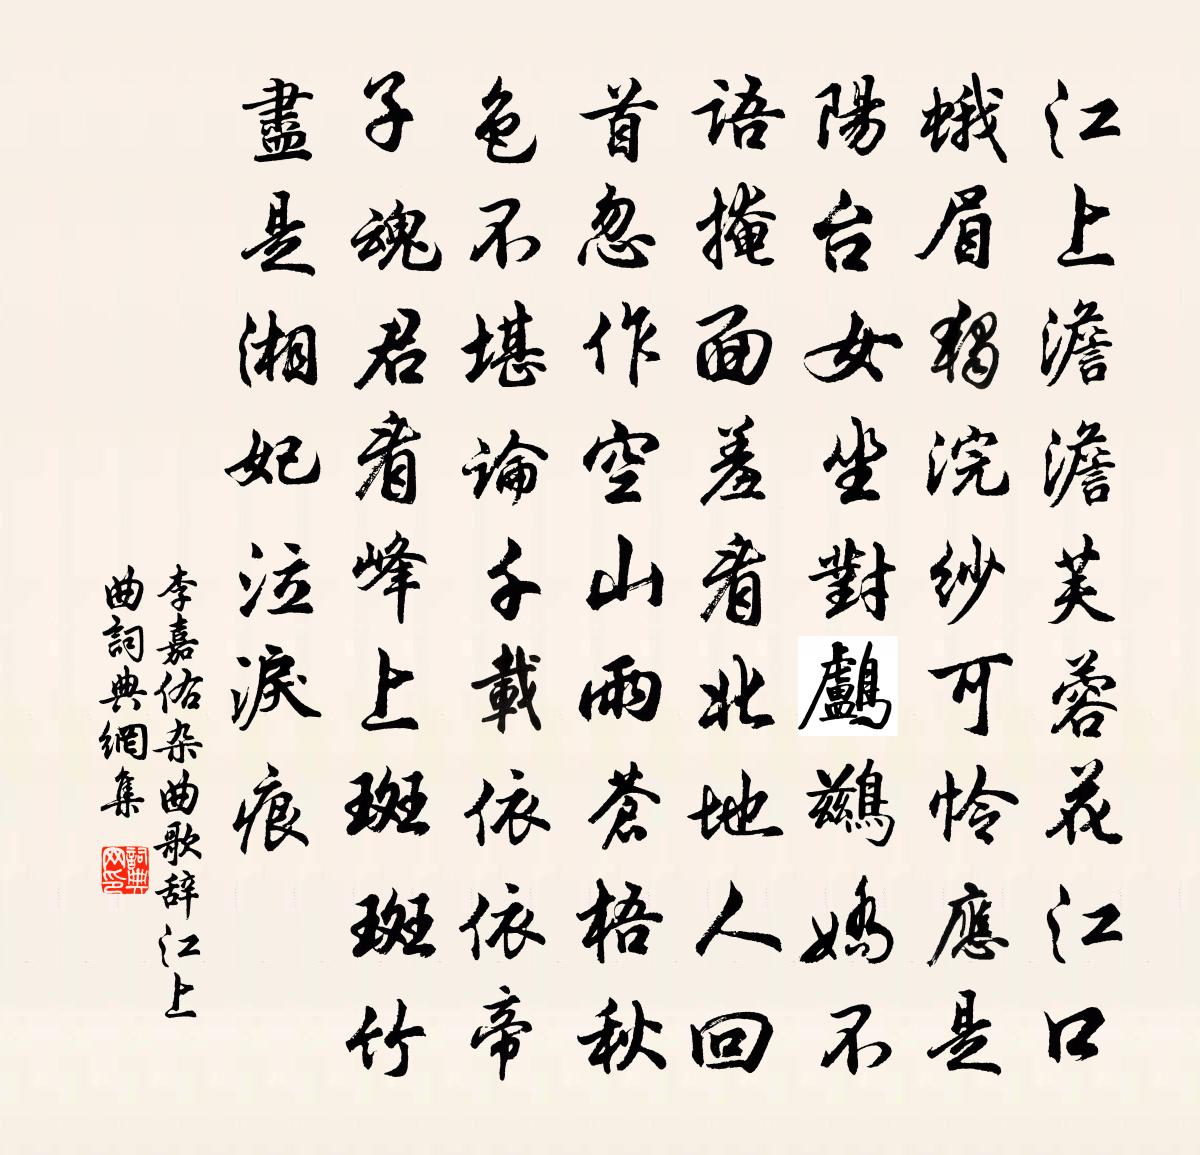 江上澹澹芙蓉花江口
蛾眉獨浣紗可怜應是
陽台女坐對鸕鷀嬌不
語掩面羞看北地人回
首忽作空山雨蒼梧秋
色不堪論千載依依帝
子魂君看峰上斑斑竹
盡是湘妃泣淚痕
李嘉佑杂曲歌辞江上
曲詞典網集
詞典网印